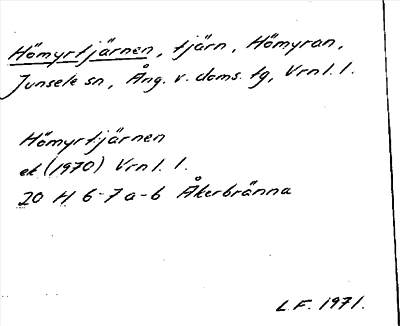 Hömyrtjärnen, tjärn, Hömyran,
Junsele sn, Ång. v. doms. tg, Vrnl. l.
Hömyrtjärnen
ek (1970) Vrnl. l.
20 H 6-7 a-b Åkerbränna
L.F. 1971.